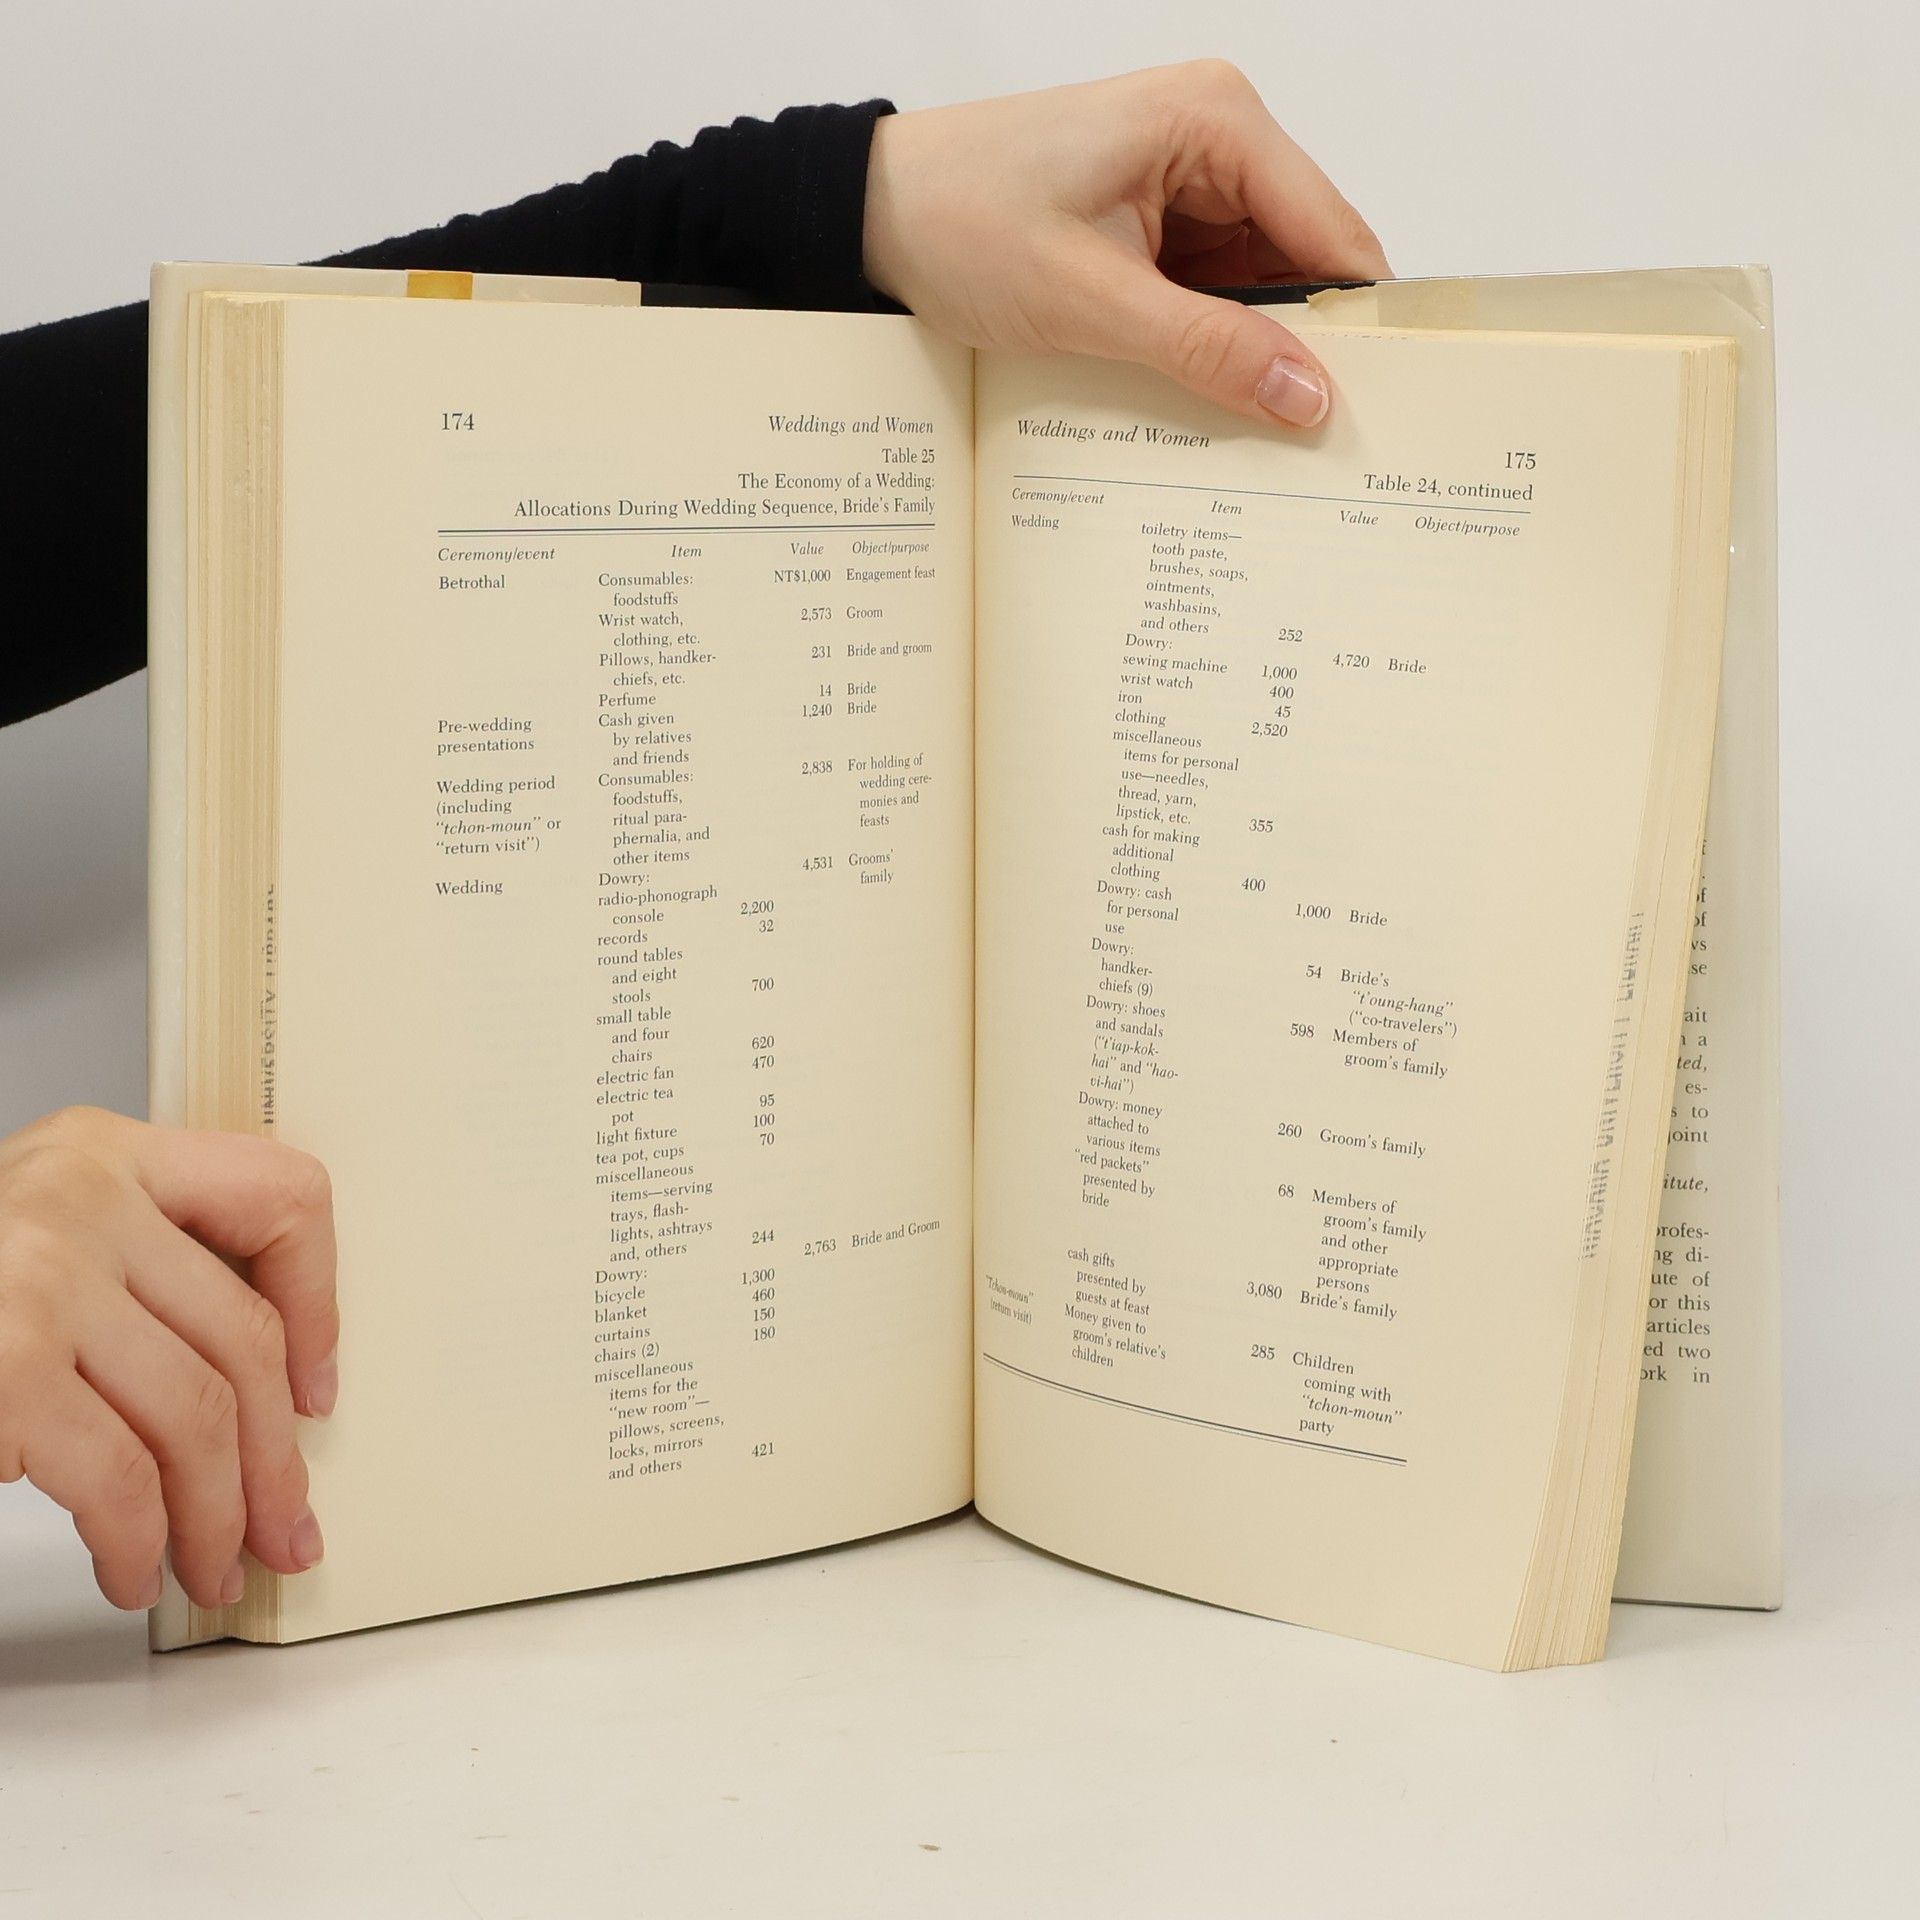 174
Weddings and Women
Table 25
The Economy of a Wedding:
Allocations During Wedding Sequence, Bride's Family
Ceremony/event Item Value Object/purpose
Betrothal Consumables: NT$1,000 Engagement feast
foodstuffs
Wrist watch, 2,573 Groom
clothing, etc.
Pillows, handker- 231 Bride and groom
chiefs, etc.
Perfume 14 Bride
Pre-wedding Cash given 1,240 Bride
presentations by relatives
and friends
Wedding period Consumables: 2,838 For holding of
(including foodstuffs, wedding cere-
"tchon-moun" or ritual para- monies and
"return visit") phernalia, and feasts
other items
Wedding Dowry: 4,531 Grooms'
radio-phonograph family
console 2,200
records 32
round tables
and eight
stools 700
small table
and four
chairs 620
electric fan 470
electric tea
pot 95
light fixture 100
tea pot, cups 70
miscellaneous
items—serving
trays, flash-
lights, ashtrays
and, others 244
Dowry: 2,763 Bride and Groom
bicycle 1,300
blanket 460
curtains 150
chairs (2) 180
miscellaneous
items for the
"new room"—
pillows, screens,
locks, mirrors
and others 421
Weddings and Women
175
Table 24, continued
Ceremony/event Item Value Object/purpose
Wedding toiletry items—
tooth paste,
brushes, soaps,
ointments,
washbasins,
and others 252
Dowry: 4,720 Bride
sewing machine 1,000
wrist watch 400
iron 45
clothing 2,520
miscellaneous
items for personal
use—needles,
thread, yarn,
lipstick, etc. 355
cash for making
additional
clothing 400
Dowry: cash 1,000 Bride
for personal
use
Dowry: 54 Bride's
handker- "t'oung-hang"
chiefs (9) ("co-travelers")
Dowry: shoes 598 Members of
and sandals groom's family
("t'iap-kok-
hai" and "hao-
vi-hai")
Dowry: money 260 Groom's family
attached to
various items
"red packets" 68 Members of
presented by groom's family
bride and other
appropriate
persons
cash gifts 3,080 Bride's family
presented by
guests at feast
"Tchon-moun" Money given to 285 Children
(return visit) groom's relative's coming with
children "tchon-moun"
party
of
of
vs
se
ait
a
ted,
es-
s to
joint
itute,
profes-
ng di-
ute of
or this
articles
ed two
ork in